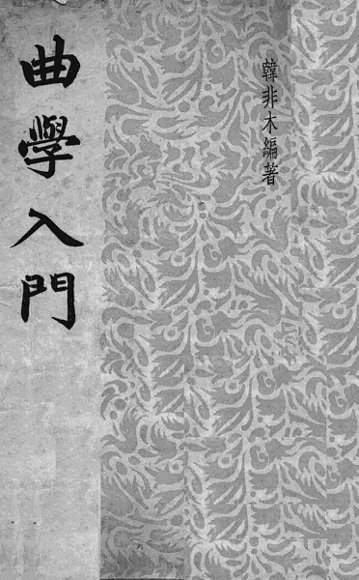 韓非木編著
曲學入門